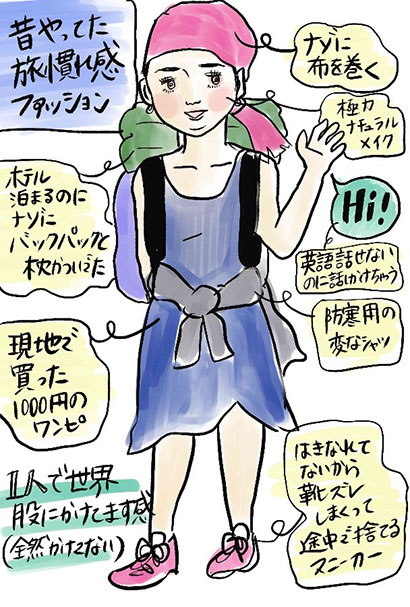 昔やってた
旅慣れ感
ファッション
ナゾに
布を巻く
極力
ナチュラル
メイク
ホテル
泊まるのに
ナゾに
バックパックと
枕かついでた
Hi!
英語話せない
のに話しかけちゃう
防寒用の
変なシャツ
現地で
買った
1000円の
ワンピ
はきなれて
ないから
靴ズレ
しまくって
途中で捨てる
スニーカー
1人で世界
股にかけてます感
(全然かけてない)